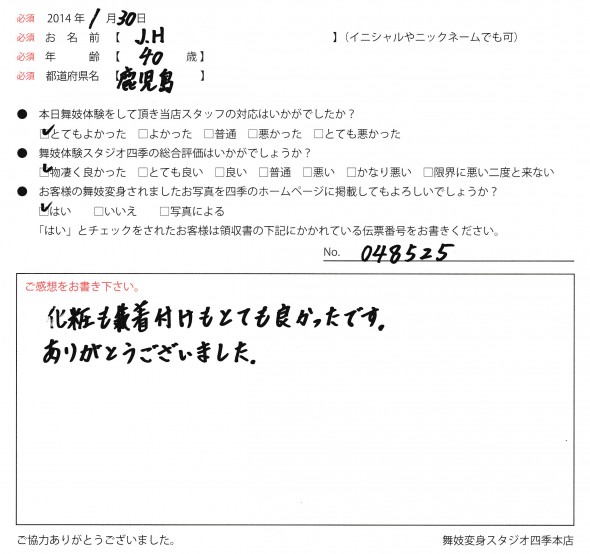 必須 2014年 1月30日
必須 お名前【 J.H 】(イニシャルやニックネームでも可)
必須 年齢【 40 歳】
必須 都道府県名【鹿児島 】
● 本日舞妓体験をして頂き当店スタッフの対応はいかがでしたか?
☑とてもよかった □よかった □普通 □悪かった □とても悪かった
● 舞妓体験スタジオ四季の総合評価はいかがでしょうか?
☑物凄く良かった □とても良い □良い □普通 □悪い □かなり悪い □限界に悪い二度と来ない
● お客様の舞妓変身されましたお写真を四季のホームページに掲載してもよろしいでしょうか?
☑はい □いいえ □写真による
「はい」とチェックをされたお客様は領収書の下記にかかれている伝票番号をお書きください。
No. 048525
ご感想をお書き下さい。
化粧も着付けもとても良かったです。
ありがとうございました。
ご協力ありがとうございました。 舞妓変身スタジオ四季本店